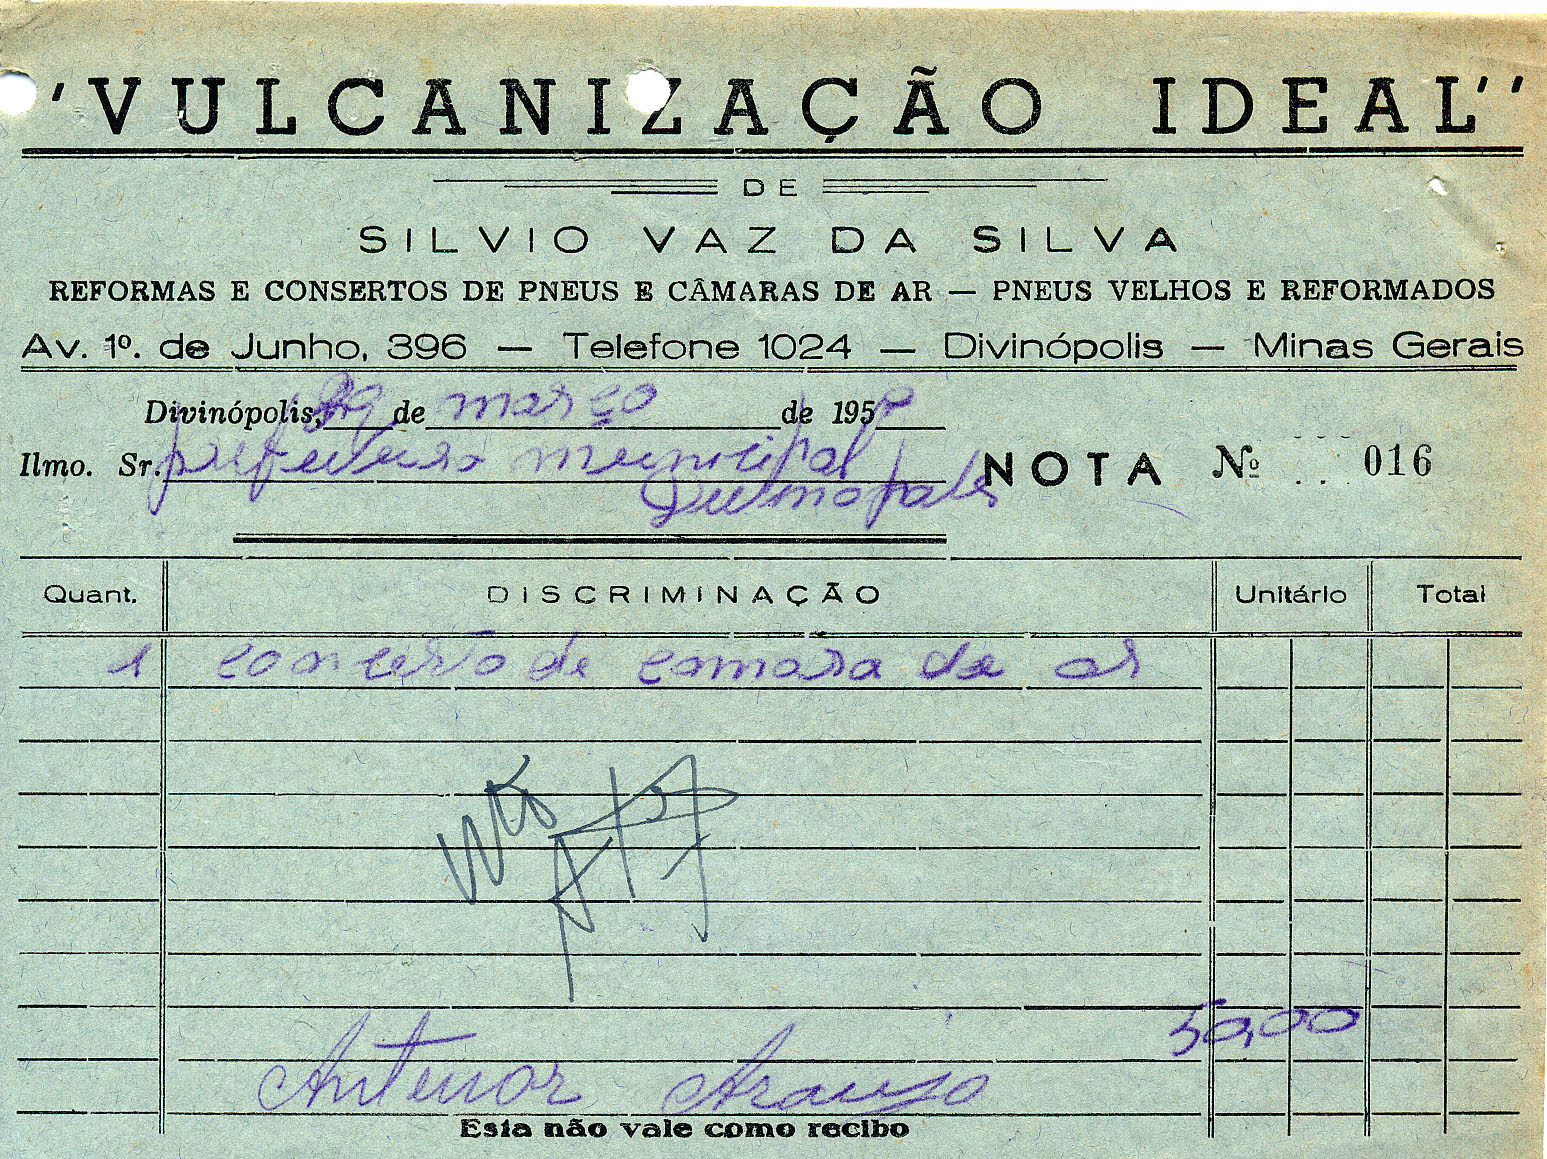 "VULCANIZAÇÃO IDEAL"
DE
SILVIO VAZ DA SILVA
REFORMAS E CONSERTOS DE PNEUS E CÂMARAS DE AR — PNEUS VELHOS E REFORMADOS
Av. 1º. de Junho, 396 — Telefone 1024 — Divinópolis — Minas Gerais
Divinópolis, 29 de março de 195
Ilmo. Sr. prefeitura municipal
NOTA Nº 016
Quant. DISCRIMINAÇÃO Unitário Total
1 concerto de camara de ar
50,00
Antenor Araujo
Esta não vale como recibo